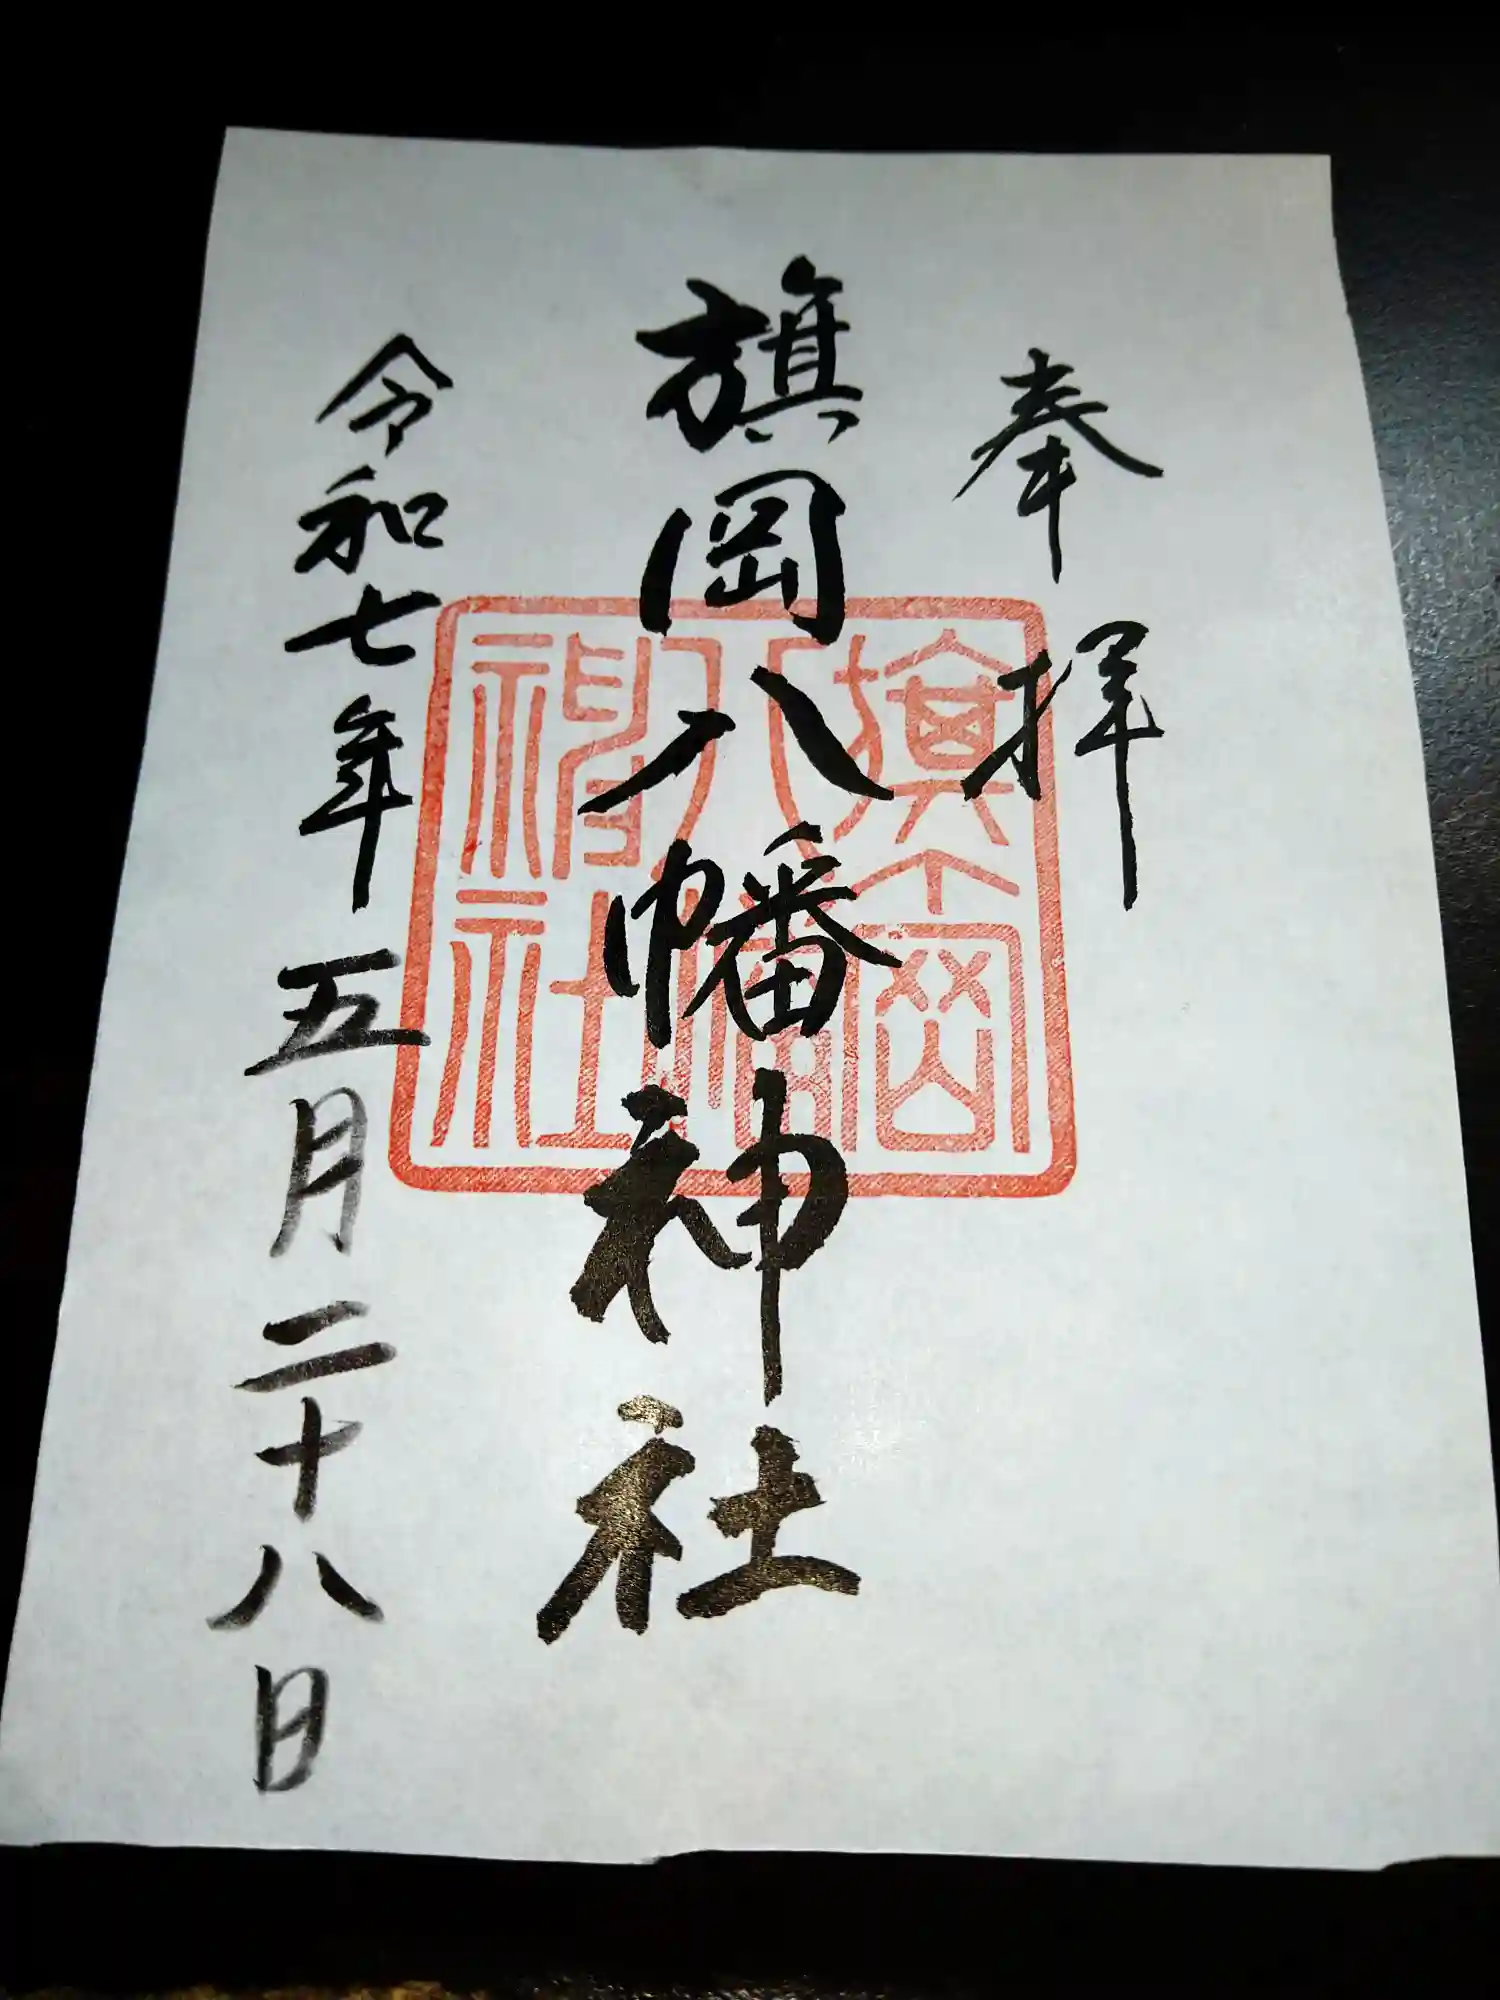 奉拝
旗岡八幡神社
旗岡
八幡
神社
令和七年五月二十八日